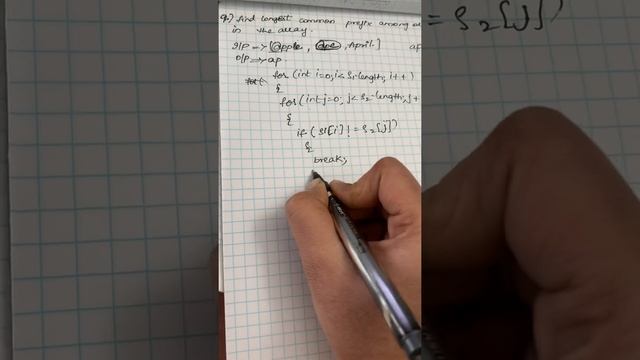 Q.) find longest common prefix among
in the array.
I/P → [apple, ape, April.] ap
O/P ⟹ ap
for (int i=0; i< s1.length; i++)
{
for (int j=0; j< s2.length; j+
{
if (s1[i] != s2[j])
{
break;
= s2[j])